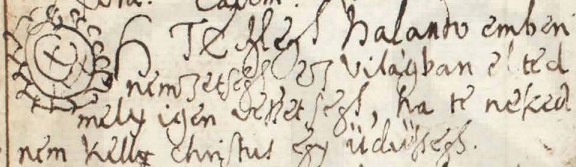 Te Asegs halando emberi
nemzetsegh ez világban elted
mely igen veszet segh, ha te neked
nem kellg christus egy üdüsségh.